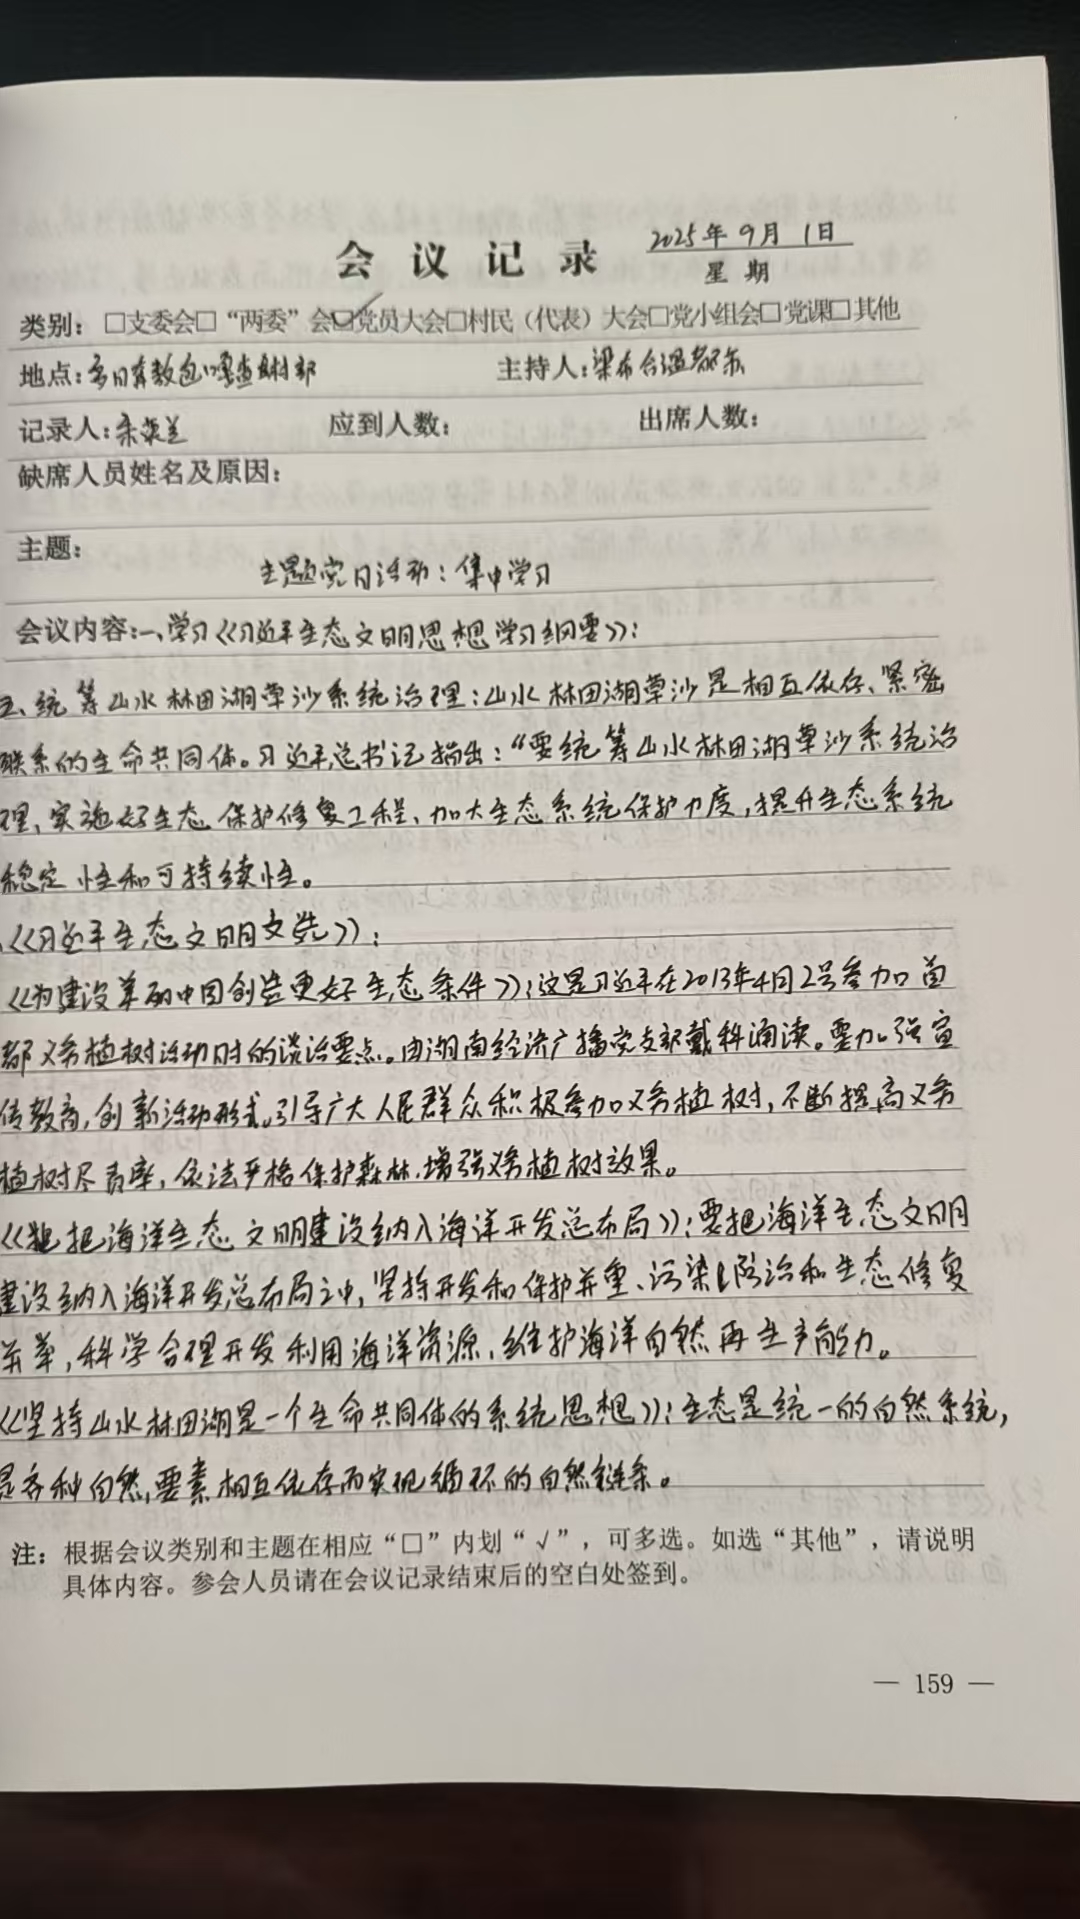 会 议 记 录
2025年9月1日
星 期
类别：□支委会□“两委”会☑党员大会□村民（代表）大会□党小组会□党课□其他
地点：嘎查村部 主持人：梁布合温都苏
记录人： 应到人数： 出席人数：
缺席人员姓名及原因：
主题：
主题党日活动：集中学习
会议内容：一、学习《习近平生态文明思想学习纲要》：
五、统筹山水林田湖草沙系统治理：山水林田湖草沙是相互依存、紧密
联系的生命共同体。习近平总书记指出：“要统筹山水林田湖草沙系统治
理，实施好生态保护修复工程，加大生态系统保护力度，提升生态系统
稳定性和可持续性。
《习近平生态文明文选》：
《为建设美丽中国创造更好生态条件》：这是习近平在2013年4月2号参加首
都义务植树活动时的谈话要点。由湖南经济广播党支部戴科诵读。要加强宣
传教育，创新活动形式，引导广大人民群众积极参加义务植树，不断提高义务
植树尽责率，依法严格保护森林，增强义务植树效果。
《把海洋生态文明建设纳入海洋开发总布局》：要把海洋生态文明
建设纳入海洋开发总布局之中，坚持开发和保护并重、污染防治和生态修复
并举，科学合理开发利用海洋资源，维护海洋自然再生产能力。
《坚持山水林田湖是一个生命共同体的系统思想》：生态是统一的自然系统，
是各种自然要素相互依存而实现循环的自然链条。
注：根据会议类别和主题在相应“□”内划“√”，可多选。如选“其他”，请说明
具体内容。参会人员请在会议记录结束后的空白处签到。
— 159 —